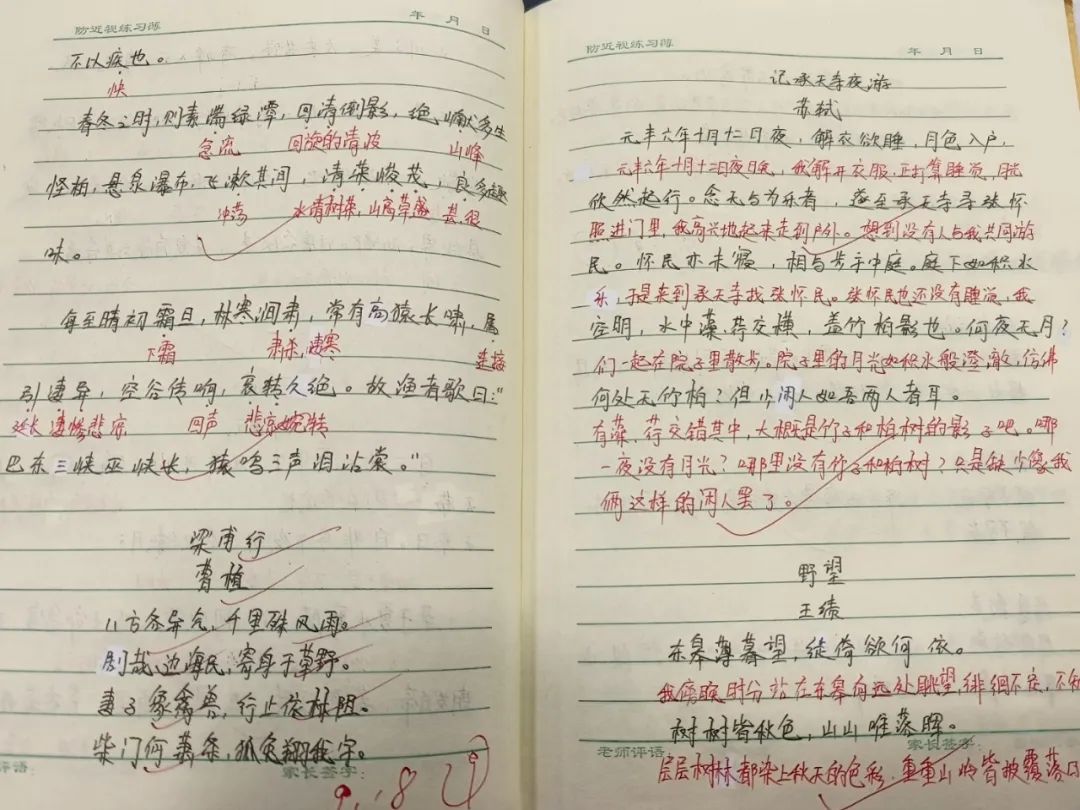 防近视练习薄
年 月 日
不以疾也。
快
春冬之时,则素湍绿潭,回清倒影,绝巘多生
急流 回旋的清波 山峰
怪柏,悬泉瀑布,飞漱其间,清荣峻茂,良多趣
冲荡 水清树荣,山高草盛 甚,很
味。
每至晴初霜旦,林寒涧肃,常有高猿长啸,属
下霜 肃杀,凄寒 连接
引凄异,空谷传响,哀转久绝。故渔者歌曰:“
延长 凄惨悲凉 回声 悲哀婉转
巴东三峡巫峡长,猿鸣三声泪沾裳。”
梁甫行
曹植
八方各异气,千里殊风雨。
剧哉边海民,寄身于草野。
妻子象禽兽,行止依林阻。
柴门何萧条,狐兔翔我宇。
评语: 家长签字:
9.18
防近视练习薄
年 月 日
记承天寺夜游
苏轼
元丰六年十月十二日夜,解衣欲睡,月色入户,
元丰六年十月十二日夜晚,我解开衣服,正打算睡觉,月光
欣然起行。念无与为乐者,遂至承天寺寻张怀
照进门里,我高兴地起来走到户外。想到没有人与我共同游
民。怀民亦未寝,相与步于中庭。庭下如积水
乐,于是来到承天寺找张怀民。张怀民也还没有睡觉,我
空明,水中藻、荇交横,盖竹柏影也。何夜无月?
们一起在院子里散步。院子里的月光如积水般澄澈,仿佛
何处无竹柏?但少闲人如吾两人者耳。
有藻、荇交错其中,大概是竹子和柏树的影子吧。哪
一夜没有月光?哪里没有竹子和柏树?只是缺少像我
俩这样的闲人罢了。
野望
王绩
东皋薄暮望,徙倚欲何依。
我傍晚时分站在东皋向远处眺望,徘徊不定,不知
树树皆秋色,山山唯落晖。
老师评语: 家长签字:
层层树林都染上秋天的色彩,重重山岭皆披覆落日